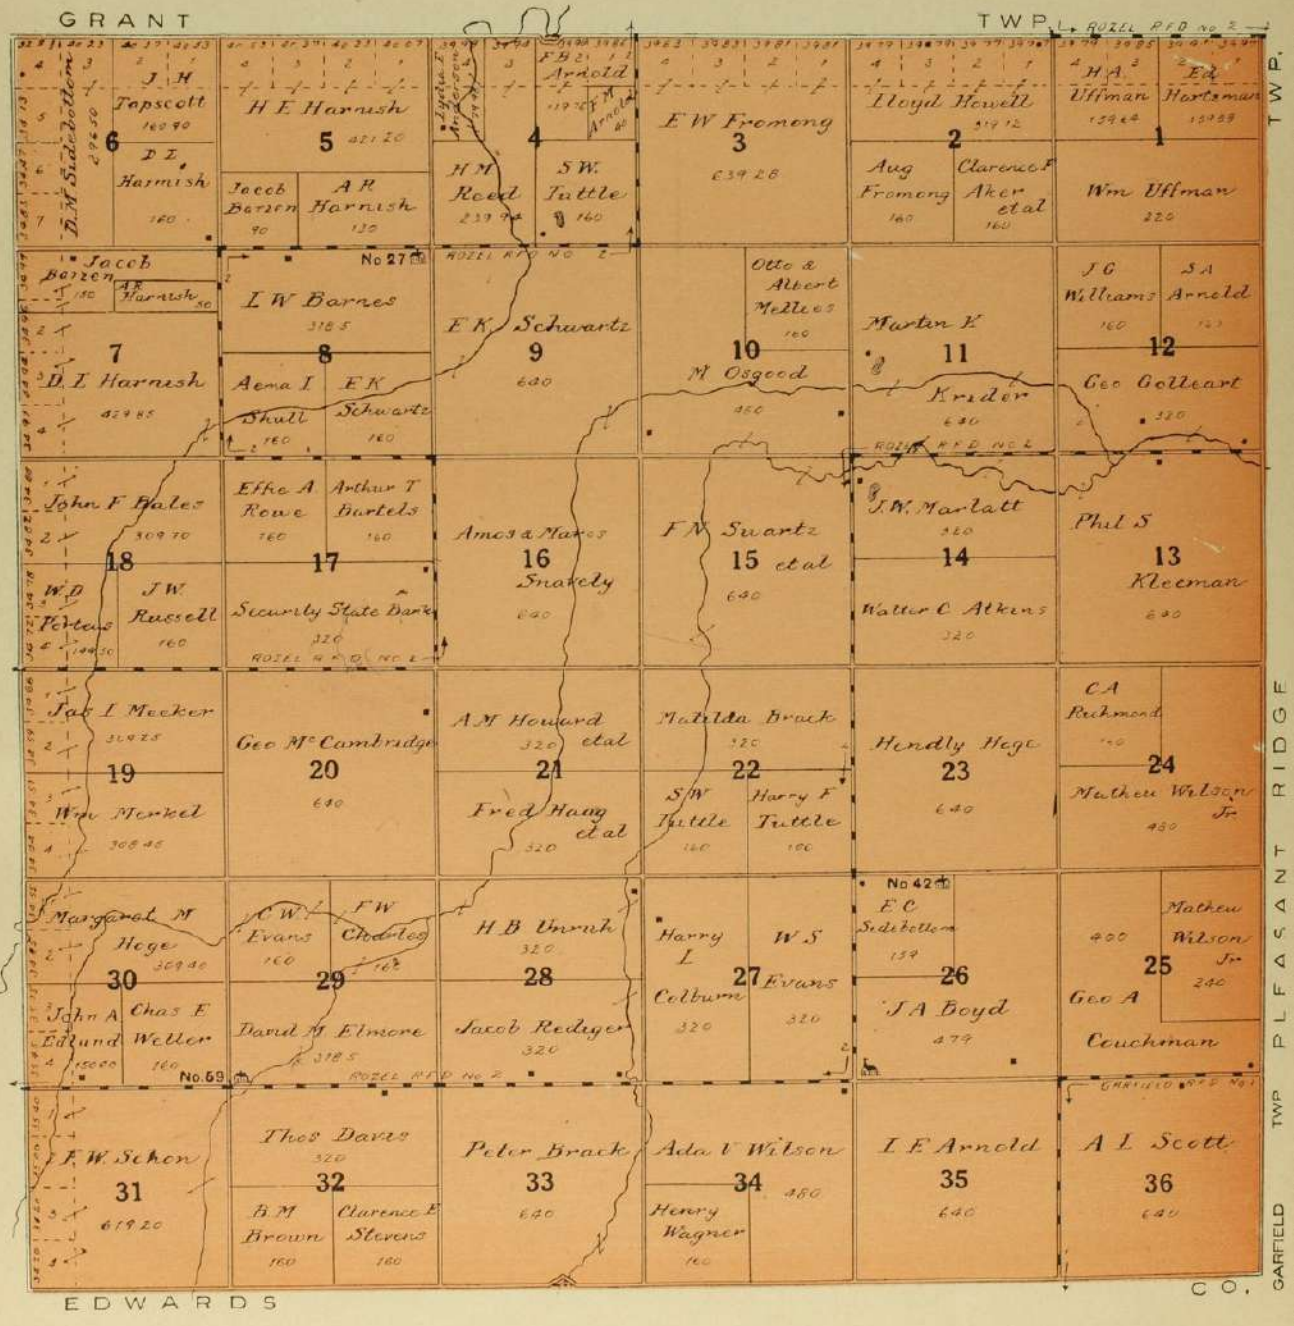 GRANT TWP.
ROZEL RFD No 2
TWP.
D.M. Sidebottom
296 50
J H
Tapscott
160 90
6
D I
Harnish
160
H E Harnish
5
421 20
Jacob
Barren
90
A R
Harnish
130
Lydia E
Anderson
F B
Arnold
F M
Arnold
40
4
H M
Reed
239 94
S.W.
Tuttle
160
E W Fromong
3
639 28
Lloyd Howell
319 12
2
Aug
Fromong
160
Clarence F
Aker
et al
160
H A
Uffman
159 64
Ed
Hartsman
159 59
1
Wm Uffman
320
Jacob
Barren
150
A R
Harnish
50
7
D I Harnish
429 85
No 27
I W Barnes
318 5
8
Aema I
Shull
160
E K
Schwartz
160
ROZEL RFD NO 2
E K Schwartz
9
640
Otto &
Albert
Mellies
160
10
M Osgood
480
Martin K
11
Krider
640
ROZEL RFD NO 2
J G
Williams
160
S A
Arnold
160
12
Geo Golleart
320
John F Bales
309 70
18
W.D.
Porteus
149 50
J W.
Russell
160
Effie A
Rowe
160
Arthur T
Bartels
160
17
Security State Bank
320
ROZEL R F D NO 2
Amos & Mares
16
Snavely
640
F N Swartz
15 et al
640
J.W. Marlatt
320
14
Walter C Atkins
320
Phil S
13
Kleeman
640
Jas I Meeker
309 25
19
Wm Merkel
308 45
Geo McCambridge
20
640
A M Howard
320 et al
21
Fred Haag
et al
320
Matilda Brack
320
22
S W
Tuttle
160
Harry F
Tuttle
160
Hendly Hoge
23
640
C A
Richmond
160
24
Matheu Wilson
Jr
480
Margaret M
Hoge
309 40
30
John A
Edlund
150 00
Chas E
Weller
160
No. 69
C W
Evans
160
F W
Charles
160
29
David M Elmore
318 5
ROZEL RFD No 2
H B Unruh
320
28
Jacob Rediger
320
Harry
I
Colburn
320
27
W S
Evans
320
No 42
E C
Sidebottom
159
26
J A Boyd
479
400
25
Geo A
Couchman
Matheu
Wilson
Jr
240
GARFIELD RFD No 1
F. W. Schon
31
619 20
Thos Davis
320
32
B M
Brown
160
Clarence E
Stevens
160
Peter Brack
33
640
Ada V Wilson
34
480
Henry
Wagner
160
I E Arnold
35
640
A L Scott
36
640
PLEASANT RIDGE
GARFIELD TWP
EDWARDS CO.